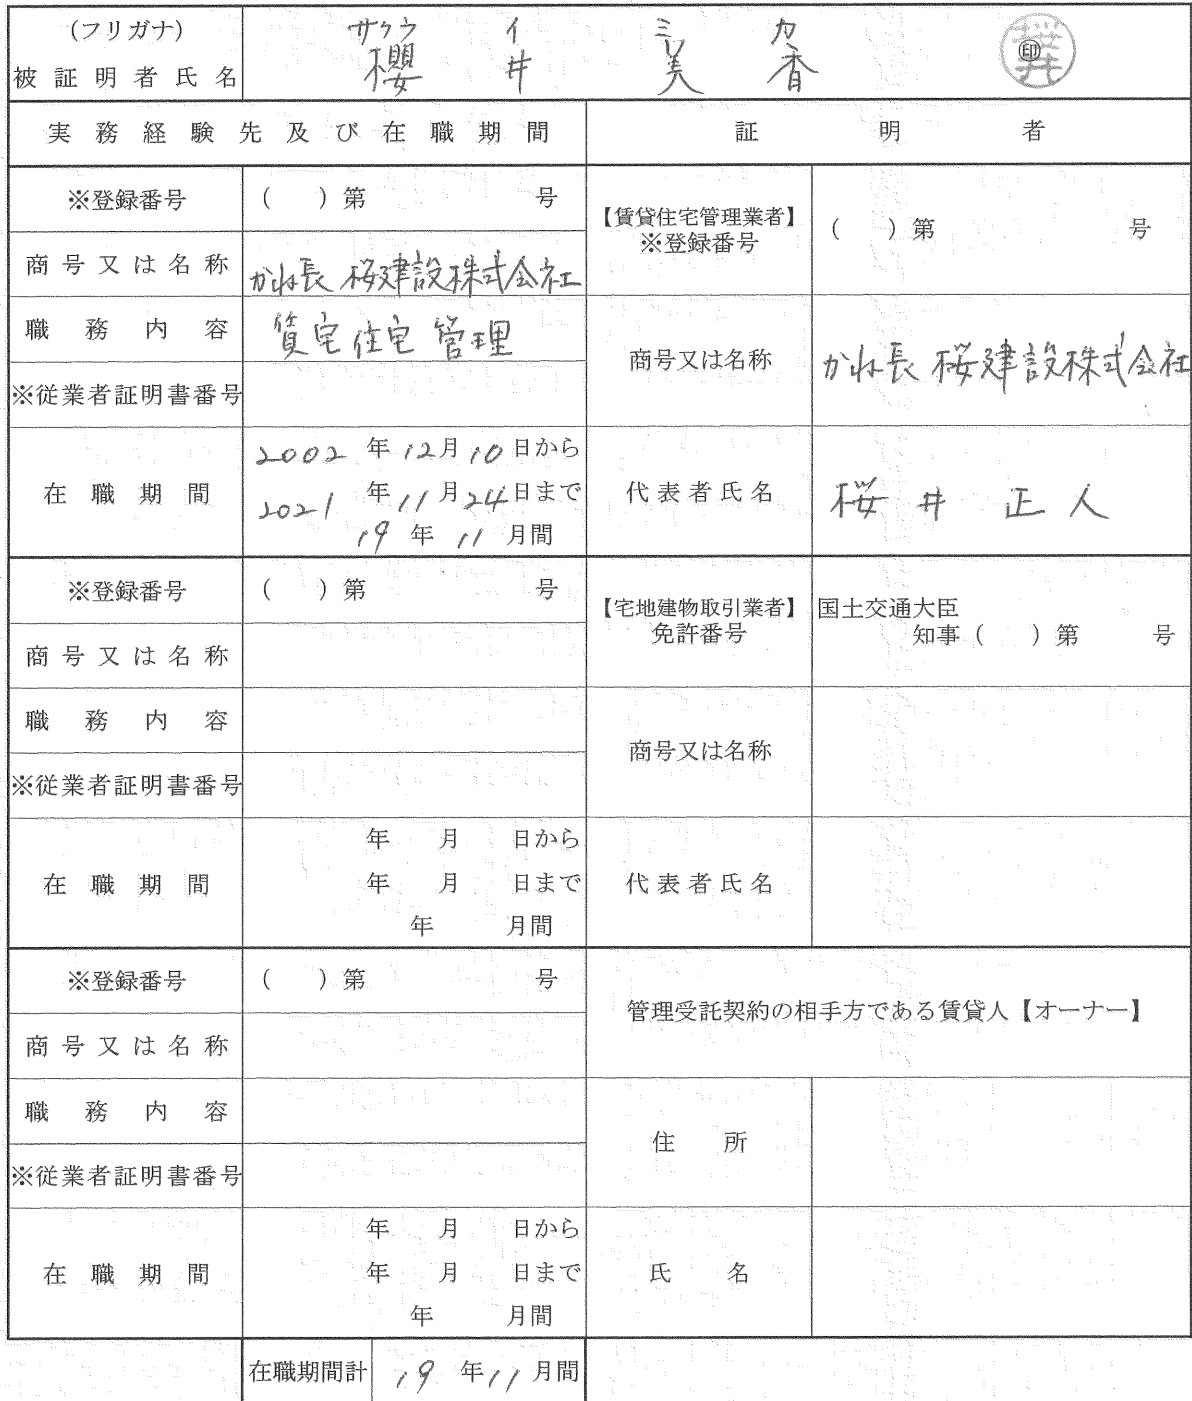 (フリガナ) サクラ イ ミ カ
被証明者氏名 櫻井 美香 ㊞
実務経験先及び在職期間 証明者
※登録番号 ( )第 号
【賃貸住宅管理業者】
※登録番号 ( )第 号
商号又は名称 かね長桜建設株式会社
職務内容 賃宅住宅管理
商号又は名称 かね長桜建設株式会社
※従業者証明書番号
在職期間 2002年12月10日から
2021年11月24日まで
19年11月間
代表者氏名 桜井 正人
※登録番号 ( )第 号
【宅地建物取引業者】
免許番号
国土交通大臣
知事( )第 号
商号又は名称
職務内容
商号又は名称
※従業者証明書番号
在職期間 年 月 日から
年 月 日まで
年 月間
代表者氏名
※登録番号 ( )第 号
管理受託契約の相手方である賃貸人【オーナー】
商号又は名称
職務内容
住所
※従業者証明書番号
在職期間 年 月 日から
年 月 日まで
年 月間
氏名
在職期間計 19年11月間